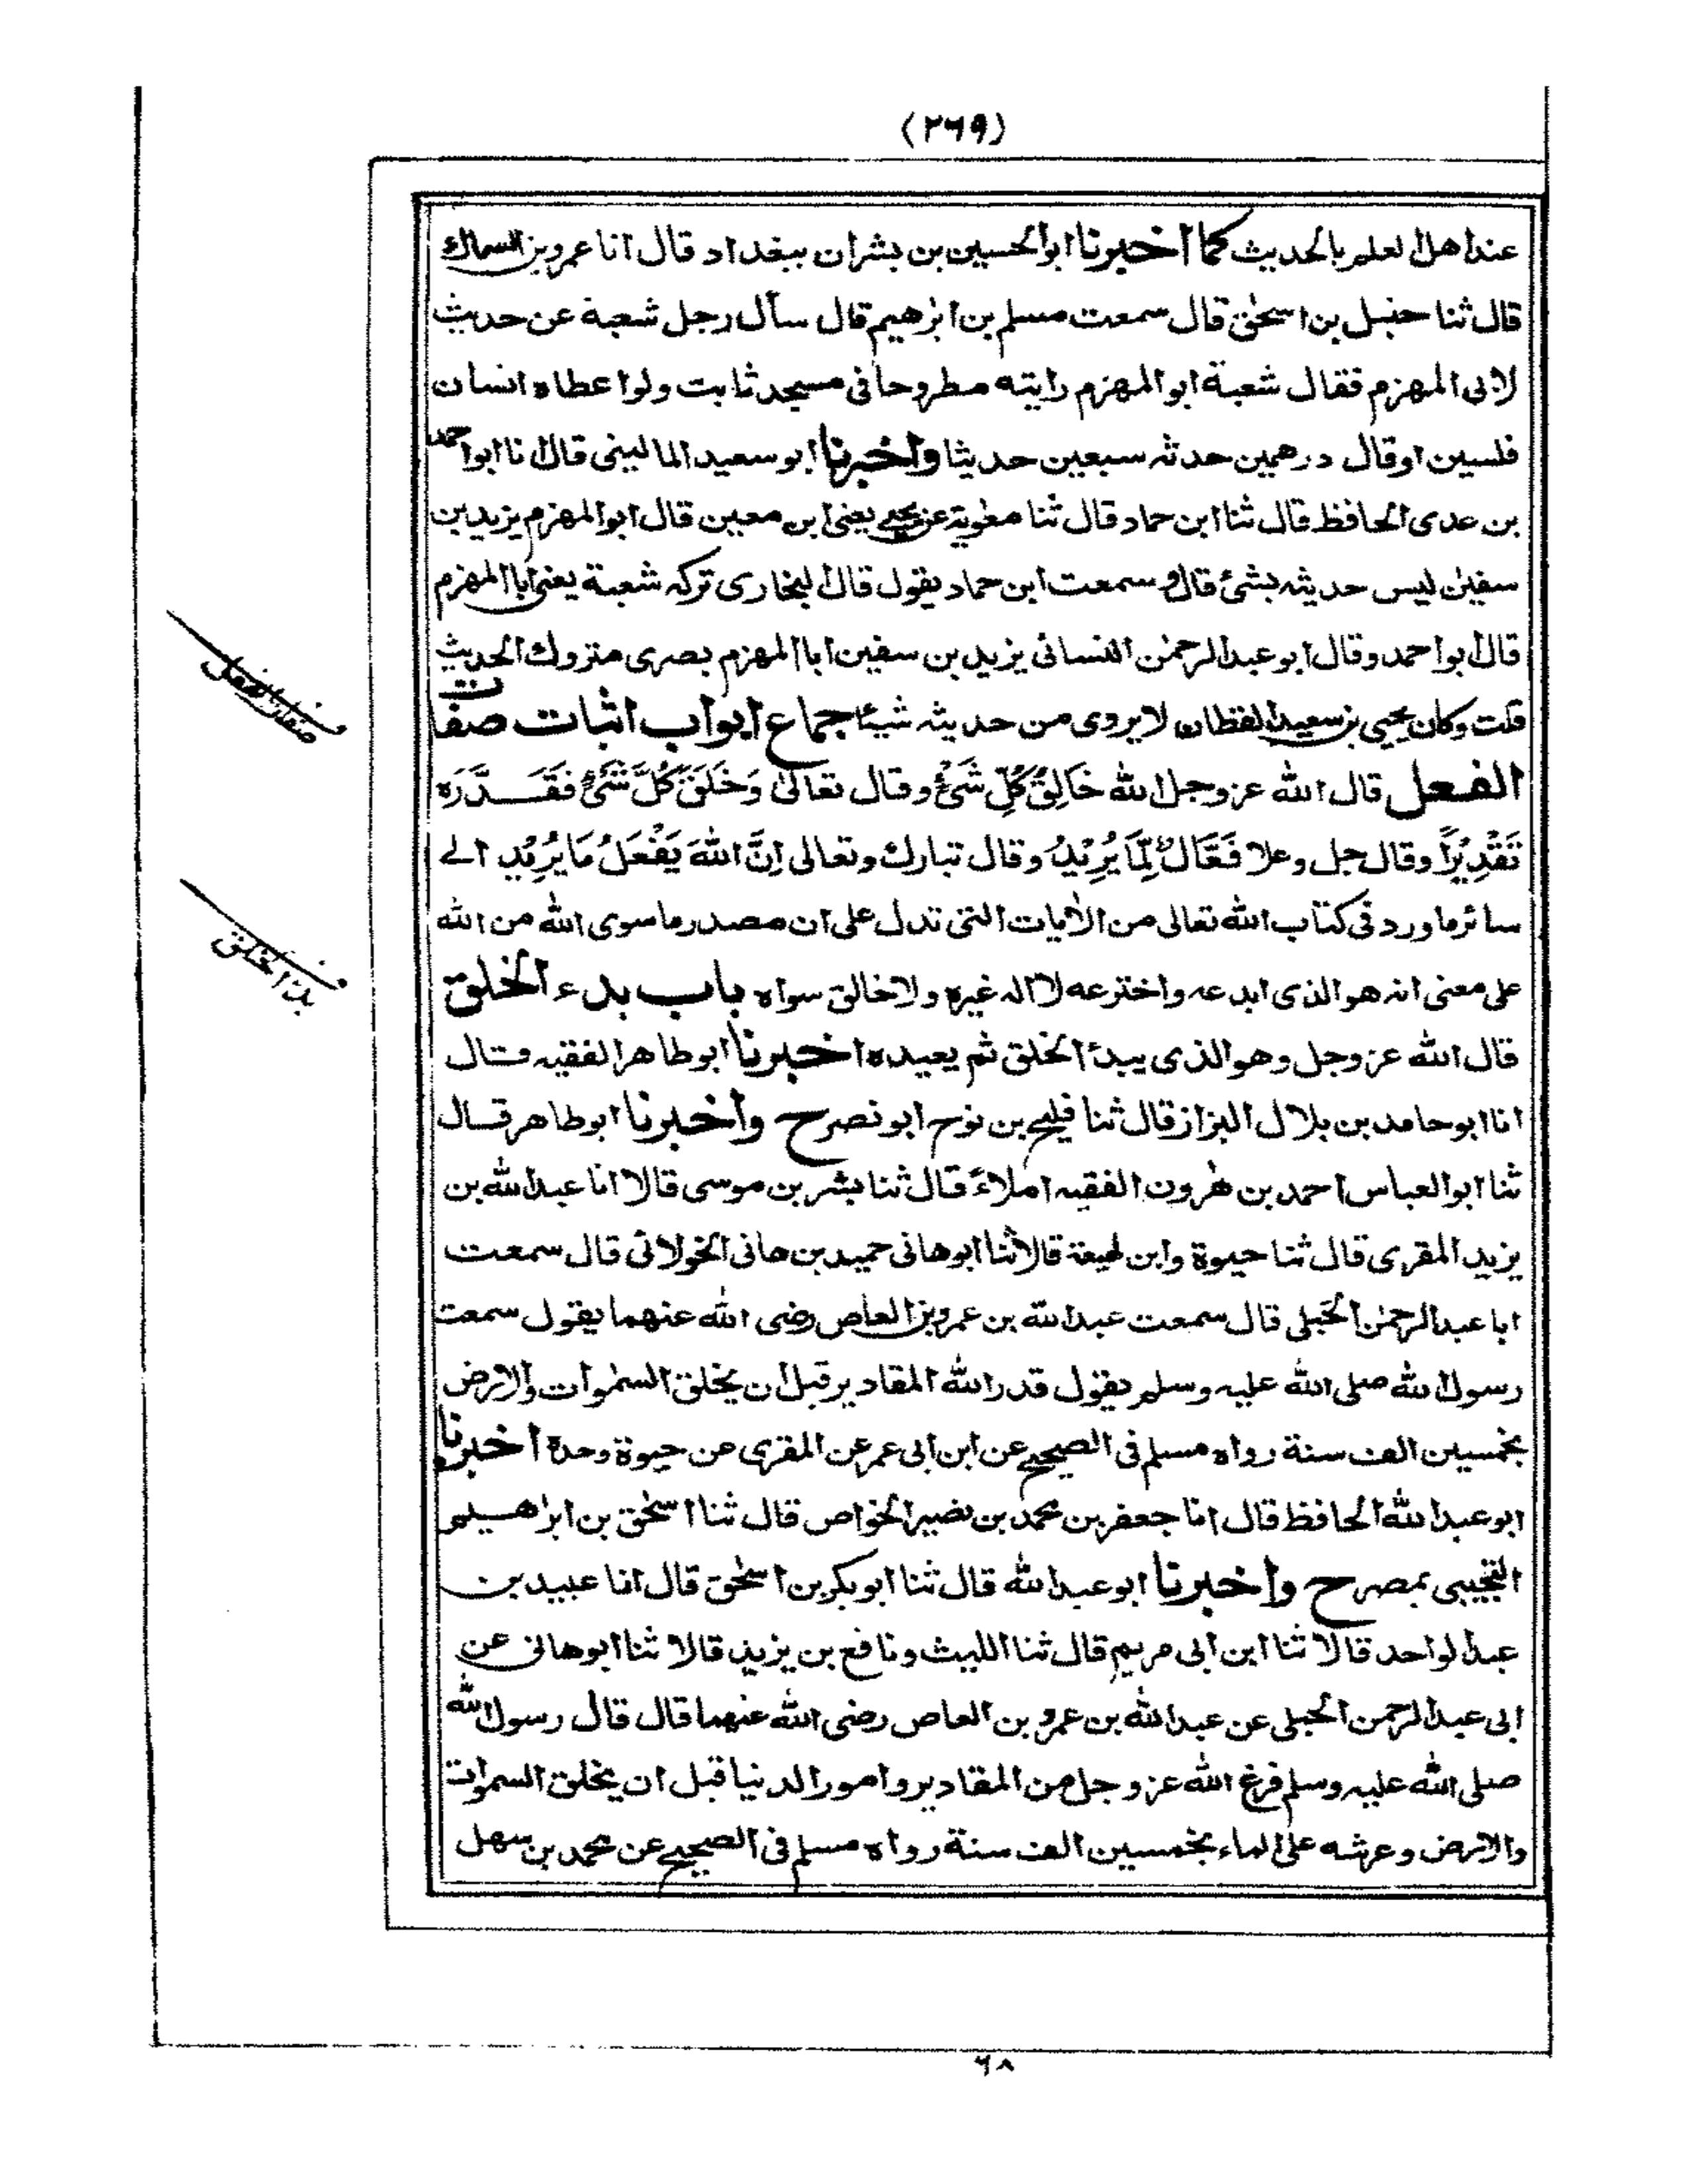 (۲۶۹)
عند اهل العلم بالحديث كما اخبرنا ابو الحسين بن بشران ببغداد قال انا عمرو بن السماك
قال ثنا حنبل بن اسحٰق قال سمعت مسلم بن ابرٰهيم قال سأل رجل شعبة عن حديث
لابى المهزم فقال شعبة ابو المهزم رايته مطروحا فى مسجد ثابت ولو اعطاه انسان
فلسين او قال درهمين حدثه سبعين حديثا واخبرنا ابو سعيد المالينى قال انا ابو احمد
بن عدى الحافظ قال ثنا ابن حماد قال ثنا معٰوية عن يحيى يعنى ابن معين قال ابو المهزم يزيد بن
سفيٰن ليس حديثه بشئ قال و سمعت ابن حماد يقول قال البخارى تركه شعبة يعنى ابا المهزم
قال ابو احمد وقال ابو عبد الرحمٰن النسائى يزيد بن سفين ابا المهزم بصرى متروك الحديث
قلت وكان يحيى بن سعيد القطان لا يروى من حديثه شيئا جماع ابواب اثبات صفات
الفعل قال الله عز وجل الله خَالِقُ كُلِّ شَئْءٍ وقال تعالىٰ وَخَلَقَ كُلَّ شَئْءٍ فَقَـدَّرَه
تَقْدِيْرًا وقال جل وعلا فَعَّالٌ لِّمَا يُرِيْدُ وقال تبارك وتعالى اِنَّ اللهَ يَفْعَلُ مَا يُرِيْد الے
سائر ما ورد فى كتاب الله تعالى من الاٰيات التى تدل على ان مصدر ما سوى الله من الله
على معنى انه هو الذى ابدعه واخترعه لا اله غيره ولا خالق سواه باب بدء الخلق
قال الله عز وجل وهو الذى يبدئ الخلق ثم يعيده اخبرنا ابو طاهر الفقيه قال
انا ابو حامد بن بلال البزاز قال ثنا فليح بن نوح ابو نصر ح واخبرنا ابو طاهر قال
ثنا ابو العباس احمد بن هٰرون الفقيه املاءً قال ثنا بشر بن موسى قالا انا عبد الله بن
يزيد المقرى قال ثنا حيوة وابن لهيعة قالا ثنا ابو هانى حميد بن هانى الخولانى قال سمعت
ابا عبد الرحمٰن الحبلى قال سمعت عبد الله بن عمرو بن العاص رضى الله عنهما يقول سمعت
رسول الله صلى الله عليه وسلم يقول قدر الله المقادير قبل ان يخلق السمٰوات والارض
بخمسين الف سنة رواه مسلم فى الصحيح عن ابن ابى عمر عن المقرى عن حيوة وحدة اخبرنا
ابو عبد الله الحافظ قال انا جعفر بن محمد بن نصير الخواص قال ثنا اسحٰق بن ابرٰهيم
التجيبى بمصر ح واخبرنا ابو عبد الله قال ثنا ابو بكر بن اسحٰق قال انا عبيد بن
عبد الواحد قالا ثنا ابن ابى مريم قال ثنا الليث ونافع بن يزيد قالا ثنا ابو هانى عن
ابى عبد الرحمن الحبلى عن عبد الله بن عمرو بن العاص رضى الله عنهما قال قال رسول الله
صلى الله عليه وسلم فرغ الله عز وجل من المقادير وامور الدنيا قبل ان يخلق السموات
والارض وعرشه على الماء بخمسين الف سنة رواه مسلم فى الصحيح عن محمد بن سهل
صفات الفعل
بدء الخلق
۶۸